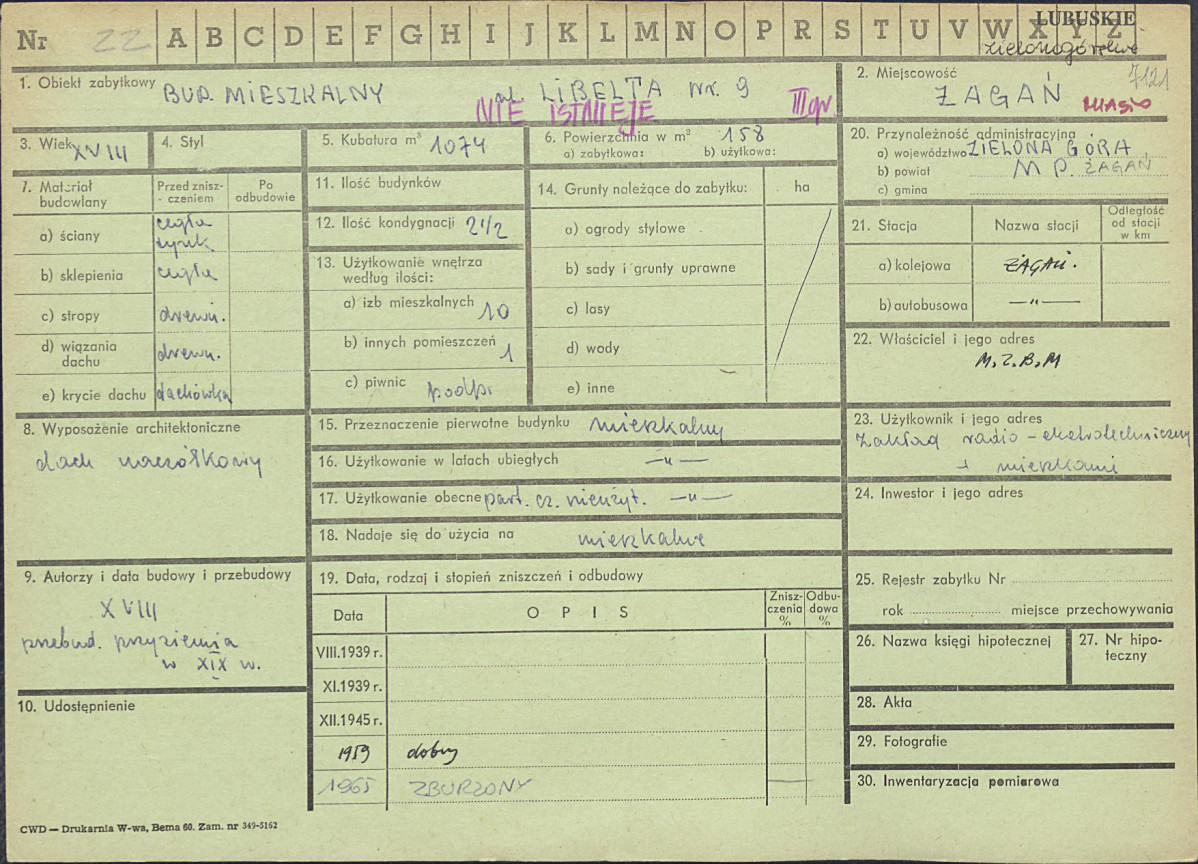 Nr 22 A B C D E F G H I J K L M N O P R S T U V W X Y Z
LUBUSKIE
zielonogórskie
1. Obiekt zabytkowy BUD. MIESZKALNY ul. LIBELTA nr. 9
NIE ISTNIEJE III gr
2. Miejscowość 7121
ŻAGAŃ MIASTO
3. Wiek XVIII
4. Styl
5. Kubatura m³ 1074
6. Powierzchnia w m² 158
a) zabytkowa: b) użytkowa:
20. Przynależność administracyjna
a) województwo ZIELONA GÓRA
b) powiat M P. ŻAGAŃ
c) gmina
7. Materiał budowlany
Przed znisz-
czeniem
Po
odbudowie
a) ściany cegła
b) sklepienia cegła
c) stropy drewn.
d) wiązania
dachu drewn.
e) krycie dachu dachówka
11. Ilość budynków
12. Ilość kondygnacji 2 1/2
13. Użytkowanie wnętrza
według ilości:
a) izb mieszkalnych 10
b) innych pomieszczeń 1
c) piwnic podp.
14. Grunty należące do zabytku: ha
a) ogrody stylowe
b) sady i grunty uprawne
c) lasy
d) wody
e) inne
21. Stacja
Nazwa stacji
Odległość
od stacji
w km
a) kolejowa ŻAGAŃ.
b) autobusowa —"—
22. Właściciel i jego adres
M.Z.B.M
8. Wyposażenie architektoniczne
dach naczółkowy
15. Przeznaczenie pierwotne budynku mieszkalny
16. Użytkowanie w latach ubiegłych —"—
17. Użytkowanie obecne part. cz. nieużyt. —"—
18. Nadaje się do użycia na mieszkalne
23. Użytkownik i jego adres
Zakład radio-elektrotechniczny
+ mieszkania
24. Inwestor i jego adres
9. Autorzy i data budowy i przebudowy
XVIII
przebud. przyziemia
w XIX w.
10. Udostępnienie
19. Data, rodzaj i stopień zniszczeń i odbudowy
Data
OPIS
Znisz-
czenia
%
Odbu-
dowa
%
VIII.1939 r.
XI.1939 r.
XII.1945 r.
1959 dobry
1965 ZBURZONY
25. Rejestr zabytku Nr
rok miejsce przechowywania
26. Nazwa księgi hipotecznej
27. Nr hipo-
teczny
28. Akta
29. Fotografie
30. Inwentaryzacja pomiarowa
CWD — Drukarnia W-wa, Bema 60. Zam. nr 349-5162